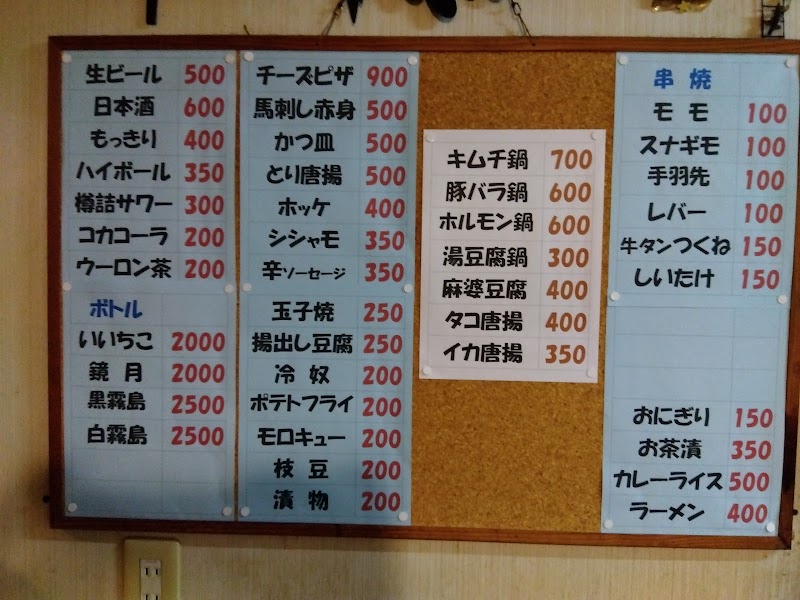 生ビール 500
日本酒 600
もっきり 400
ハイボール 350
樽詰サワー 300
コカコーラ 200
ウーロン茶 200
ボトル
いいちこ 2000
鏡月 2000
黒霧島 2500
白霧島 2500
チーズピザ 900
馬刺し赤身 500
かつ皿 500
とり唐揚 500
ホッケ 400
シシャモ 350
辛ソーセージ 350
玉子焼 250
揚出し豆腐 250
冷奴 200
ポテトフライ 200
モロキュー 200
枝豆 200
漬物 200
キムチ鍋 700
豚バラ鍋 600
ホルモン鍋 600
湯豆腐鍋 300
麻婆豆腐 400
タコ唐揚 400
イカ唐揚 350
串焼
モモ 100
スナギモ 100
手羽先 100
レバー 100
牛タンつくね 150
しいたけ 150
おにぎり 150
お茶漬 350
カレーライス 500
ラーメン 400